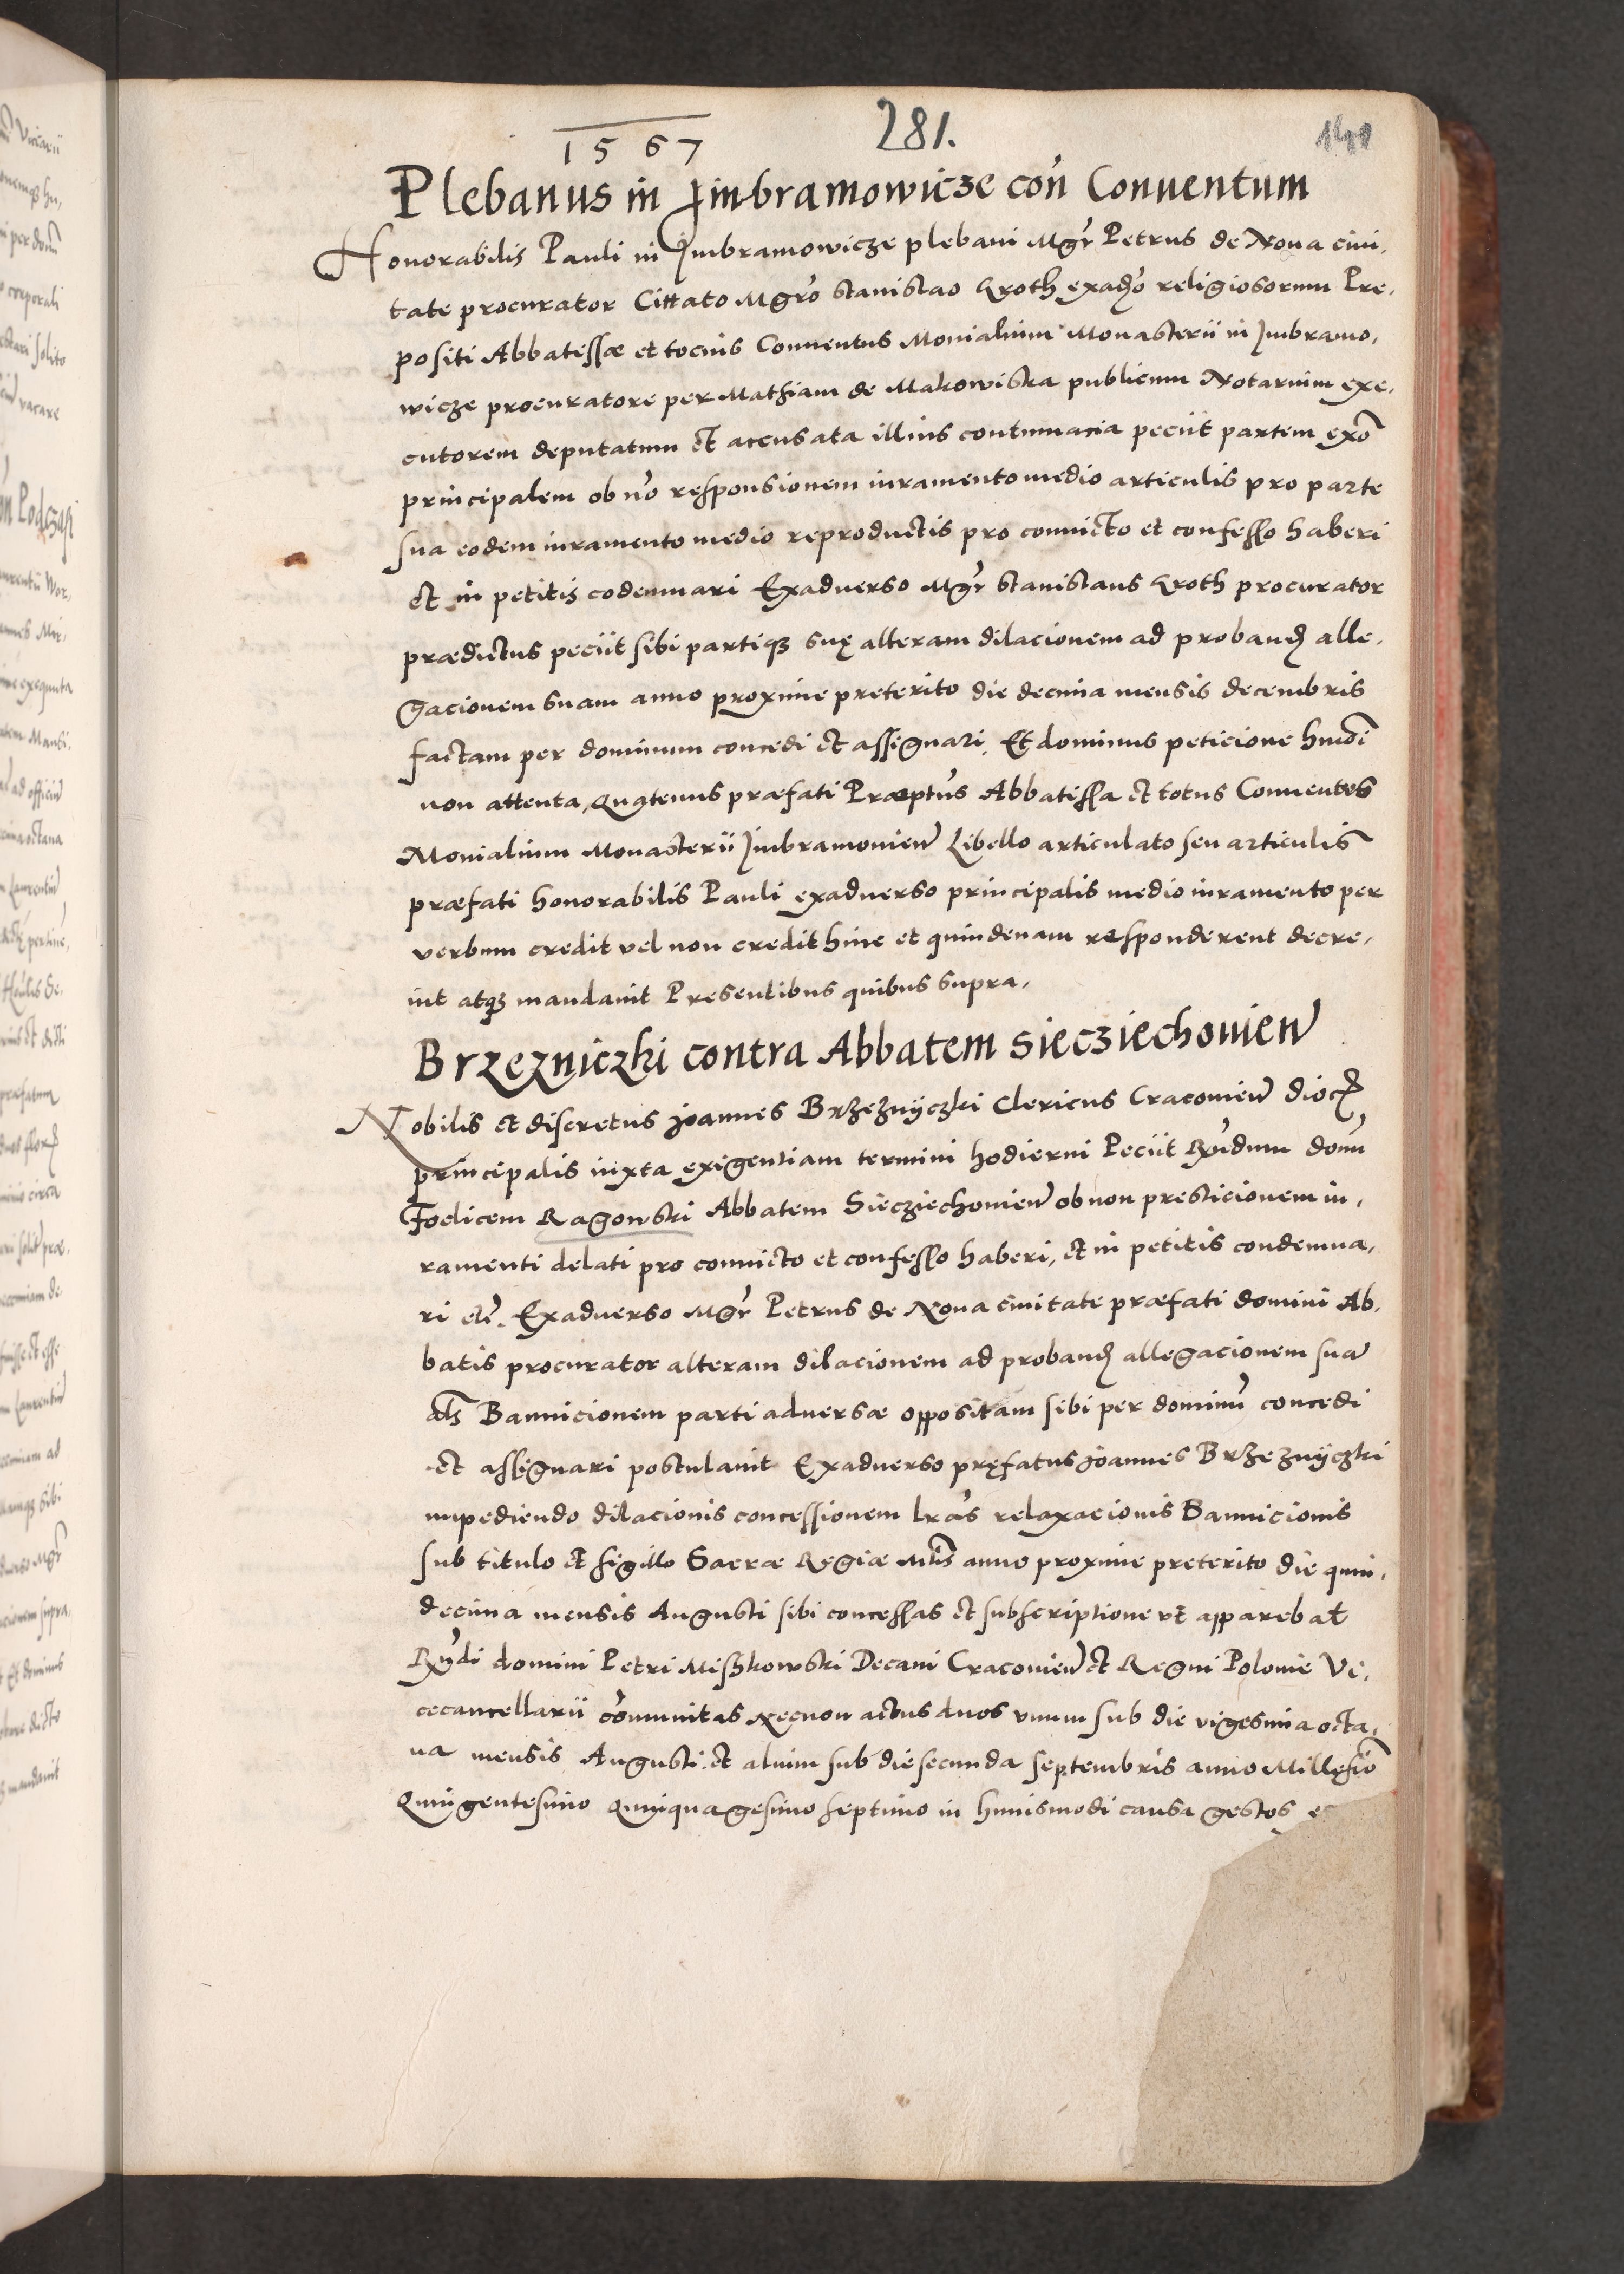 1567
281.
Plebanus in Jmbramowicze con̄ Conuentum
Honorabilis Pauli in Jmbramowicze plebani Mgr̄ Petrus de Noua ciui,
tate procurator Cittato Mgr̄o Stanislao Groth exad̄o religiosorum Pre,
positi Abbatissæ et tocius Conuentus Monialium Monasterii in Jmbramo,
wicze procuratore per Mathiam de Makowiska publicum Notarium exe,
cutorem deputatum et accusata illius contumacia peciit partem exō
principalem ob nō responsionem iuramento medio articulis pro parte
sua eodem iuramento medio reproductis pro conuicto et confesso haberi
et in petitis codemnari Exaduerso Mgr̄ Stanislaus Groth procurator
prædictus peciit sibi partiq3 suę alteram dilacionem ad proband alle,
gacionem suam anno proxime preterito die decima mensis decembris
factam per dominum concedi et assignari, Et dominus peticione hmōi
non attenta, Quatenus præfati Præptūs Abbatissa et totus Conuentus
Monialium Monasterii Jmbramouien̄ Libello articulato seu articulis
præfati honorabilis Pauli exaduerso principalis medio iuramento per
verbum credit vel non credit hinc et quindenam responderent decre,
uit atq3 mandauit Presentibus quibus supra,
Brzezniczki contra Abbatem Siecziechouien̄
Nobilis et discretus Joannes Brzeznÿczki Clericus Cracouien̄ dioc
principalis iuxta exigentiam termini hodierni Peciit Rn̄dum domū
Foelicem Ragowski Abbatem Siecziechouien̄ ob non presticionem iu,
ramenti delati pro conuicto et confesso haberi, et in petitis condemna,
ri etc̄. Exaduerso Mgr̄ Petrus de Noua ciuitate præfati domini Ab,
batis procurator alteram dilacionem ad proband allegacionem suā
als̄ Bannicionem parti aduersæ oppositam sibi per dominū concedi
et assignari postulauit Exaduerso pręfatus Joannes Brzeznÿczki
impediendo dilacionis concessionem lrās relaxacionis Bannicionis
sub titulo et sigillo Sacræ Regiæ Mtis̄ anno proxime preterito die quin,
decima mensis Augusti sibi concessas et subscriptione vt apparebat
Rn̄di domini Petri Mishkowski Decani Cracouien̄ et Regni Polonie Vi,
cecancellarii cōmunitas Necnon actus duos vnum sub die vigesima octa,
ua mensis Augusti et alium sub die secunda septembris anno Millesīo
Quingentesimo Quinquagesimo septimo in huiusmodi causa gestos